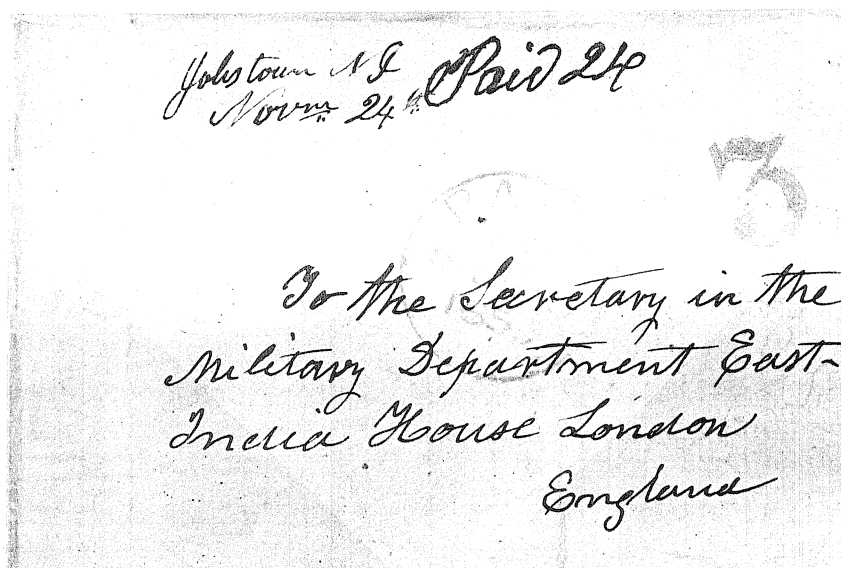 Jobstown N J Paid 24
Novm 24th
3
To the Secretary in the
Military Department East-
India House London
England